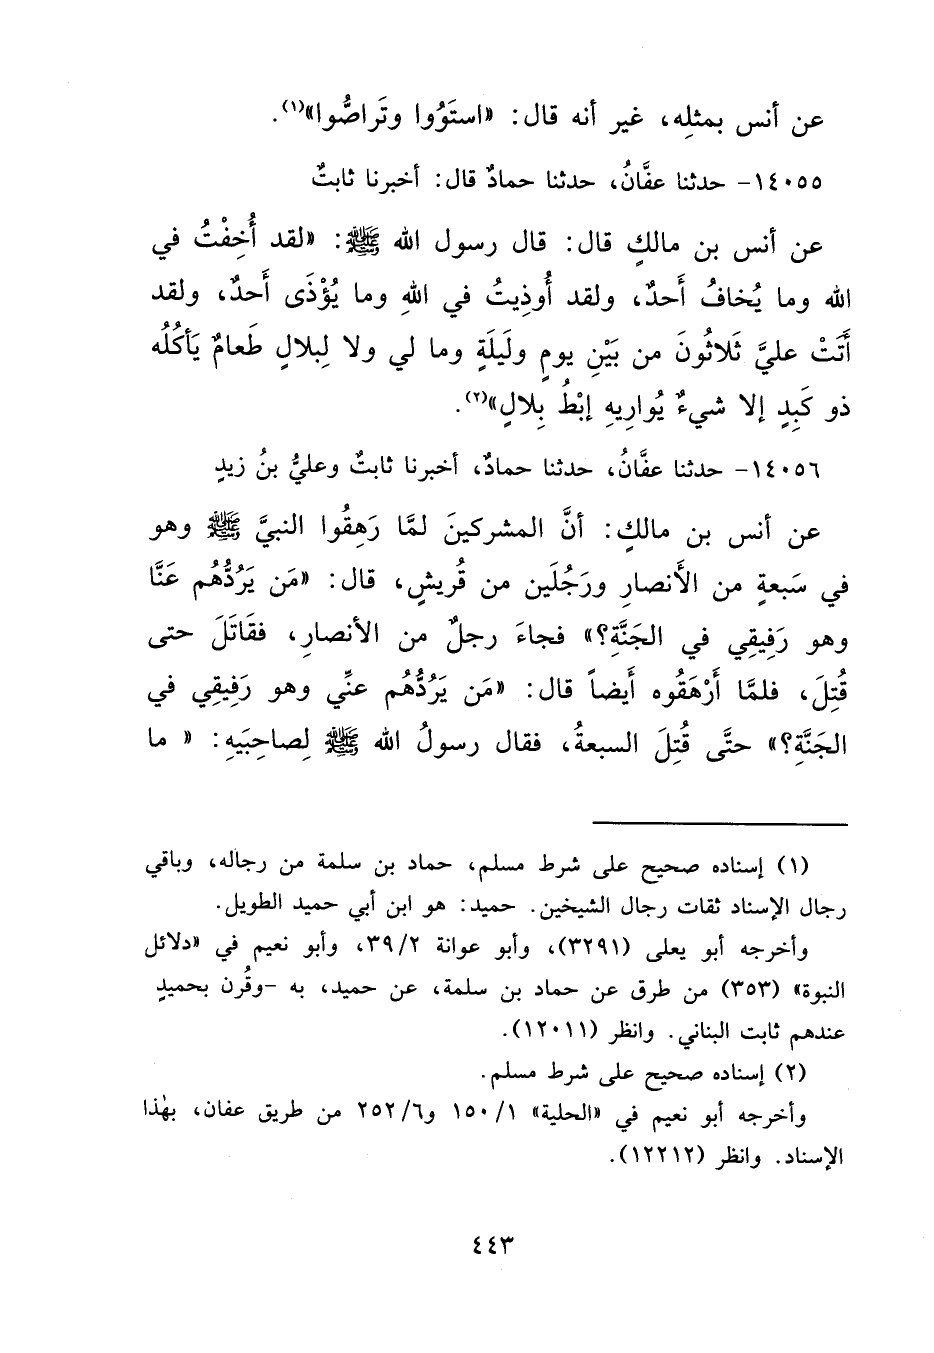 عن أنس بمثلِه، غير أنه قال: «استَوُوا وتَراصُّوا»(١).
١٤٠٥٥- حدثنا عفَّانُ، حدثنا حمادٌ قال: أخبرنا ثابتٌ
عن أنس بن مالكٍ قال: قال رسول الله ﷺ: «لقد أُخِفْتُ في
الله وما يُخافُ أَحدٌ، ولقد أُوذِيتُ في اللهِ وما يُؤْذَى أَحدٌ، ولقد
أَتَتْ عليَّ ثَلاثُونَ من بَيْنِ يومٍ ولَيلَةٍ وما لي ولا لِبلالٍ طَعامٌ يَأكُلُه
ذو كَبِدٍ إلا شيءٌ يُوارِيهِ إبْطُ بِلالٍ»(٢).
١٤٠٥٦- حدثنا عفَّانُ، حدثنا حمادٌ، أخبرنا ثابتٌ وعليُّ بنُ زيدٍ
عن أنس بن مالكٍ: أنَّ المشركينَ لمَّا رَهِقُوا النبيَّ ﷺ وهو
في سَبعةٍ من الأَنصارِ ورَجُلَين من قُريشٍ، قال: «مَن يَرُدُّهُم عَنَّا
وهو رَفِيقِي في الجَنَّةِ؟» فجاءَ رجلٌ من الأنصارِ، فقَاتَلَ حتى
قُتِلَ، فلمَّا أَرْهَقُوه أَيضاً قال: «مَن يَرُدُّهُم عنِّي وهو رَفِيقِي في
الجَنَّةِ؟» حتَّى قُتِلَ السبعةُ، فقال رسولُ الله ﷺ لِصاحِبَيهِ: « ما
(١) إسناده صحيح على شرط مسلم، حماد بن سلمة من رجاله، وباقي
رجال الإسناد ثقات رجال الشيخين. حميد: هو ابن أبي حميد الطويل.
وأخرجه أبو يعلى (٣٢٩١)، وأبو عوانة ٣٩/٢، وأبو نعيم في «دلائل
النبوة» (٣٥٣) من طرق عن حماد بن سلمة، عن حميد، به -وقُرن بحميدٍ
عندهم ثابت البناني. وانظر (١٢٠١١).
(٢) إسناده صحيح على شرط مسلم.
وأخرجه أبو نعيم في «الحلية» ١٥٠/١ و٢٥٢/٦ من طريق عفان، بهٰذا
الإسناد. وانظر (١٢٢١٢).
٤٤٣